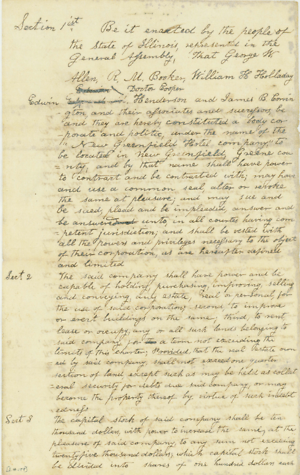 Section 1st Be it enacted by the people of
the State of Illinois, represented in the
General Assembly, that George W
Allen, R. M. Booker, William H Holladay
Doctor Cooper
Edwin Henderson and James B. Coving
ton and their associates and successors be
and they are hereby constituted a body cor
porate and politic, under the name of the
"New Greenfield Hotel company" to
be located in New Greenfield, Greene cou
nty, and by that name shall have power
to contract and be contracted with; may have
and use a common seal, alter or revoke
the same at pleasure; and may sue and
be sued, plead and be impleaded, answer and
be answered unto, in all courts having com
petent jurisdiction, and shall be vested with
all the powers and privileges necessary to the object
of their corporation, as are hereinafter defined
and limited
Sect 2 The said company shall have power and be
capable of holding, purchasing, improving, selling
and conveying any estate, real or personal, for
the use of said corporation; second, to improve
or erect buildings on the same; third, to rent
lease or occupy, any or all such lands belonging to
said company for a term not exceeding the
limits of this charter, Provided that the real estate own
ed by said company shall not exceed
of land except such as may be held as collat
eral security for debts due said company, or may
become the property thereof by virtue of such indebt
edness
Sect 3 The capital stock of said company shall be ten
thousand dollars, with power to increase the same, at the
pleasure of said company, to any sum not exceeding
twenty five thousand dollars, which capital stock shall
be divided into shares of one hundred dollars